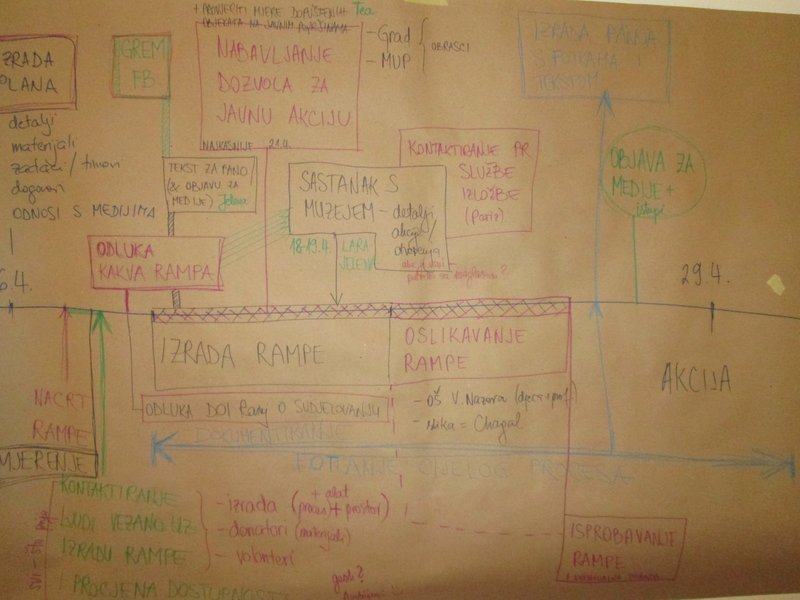 + PROVJERITI MJERE DOPUŠTENIH Tea
OBJEKATA NA JAVNIM POVRŠINAMA
IZRADA
PLANA
detalji
materijali
zadaci / timovi
dogovori
ODNOSI S MEDIJIMA
GREM
FB
NABAVLJANJE
DOZVOLA ZA
JAVNU AKCIJU
NAJKASNIJE 21.4.
- Grad
- MUP
OBRASCI
IZRADA PANOA
S FOTKAMA I
TEKSTOM
TEKST ZA PANO
(& OBJAVU ZA
MEDIJE) Jelena
SASTANAK S
MUZEJEM - detalji
akcije /
otvorenja
18-19.4. LARA
JELENA
KONTAKTIRANJE PR
SLUŽBE
IZLOŽBE
(Pariz)
OBJAVA ZA
MEDIJE +
istupi
ODLUKA
KAKVA RAMPA
6.4.
29.4.
IZRADA RAMPE
OSLIKAVANJE
RAMPE
AKCIJA
NACRT
RAMPE
MJERENJE
ODLUKA DOI O SUDJELOVANJU
- OŠ V. Nazora (djeca i prof.)
- slika = Chagal
DOKUMENTIRANJE
FOTKANJE CIJELOG PROCESA
KONTAKTIRANJE
LJUDI VEZANO UZ
IZRADU RAMPE
I PROCJENA DOSTUPNOSTI
+ alat
- izrada + prostori)
- donatori (materijali)
- volonteri
ISPROBAVANJE
RAMPE